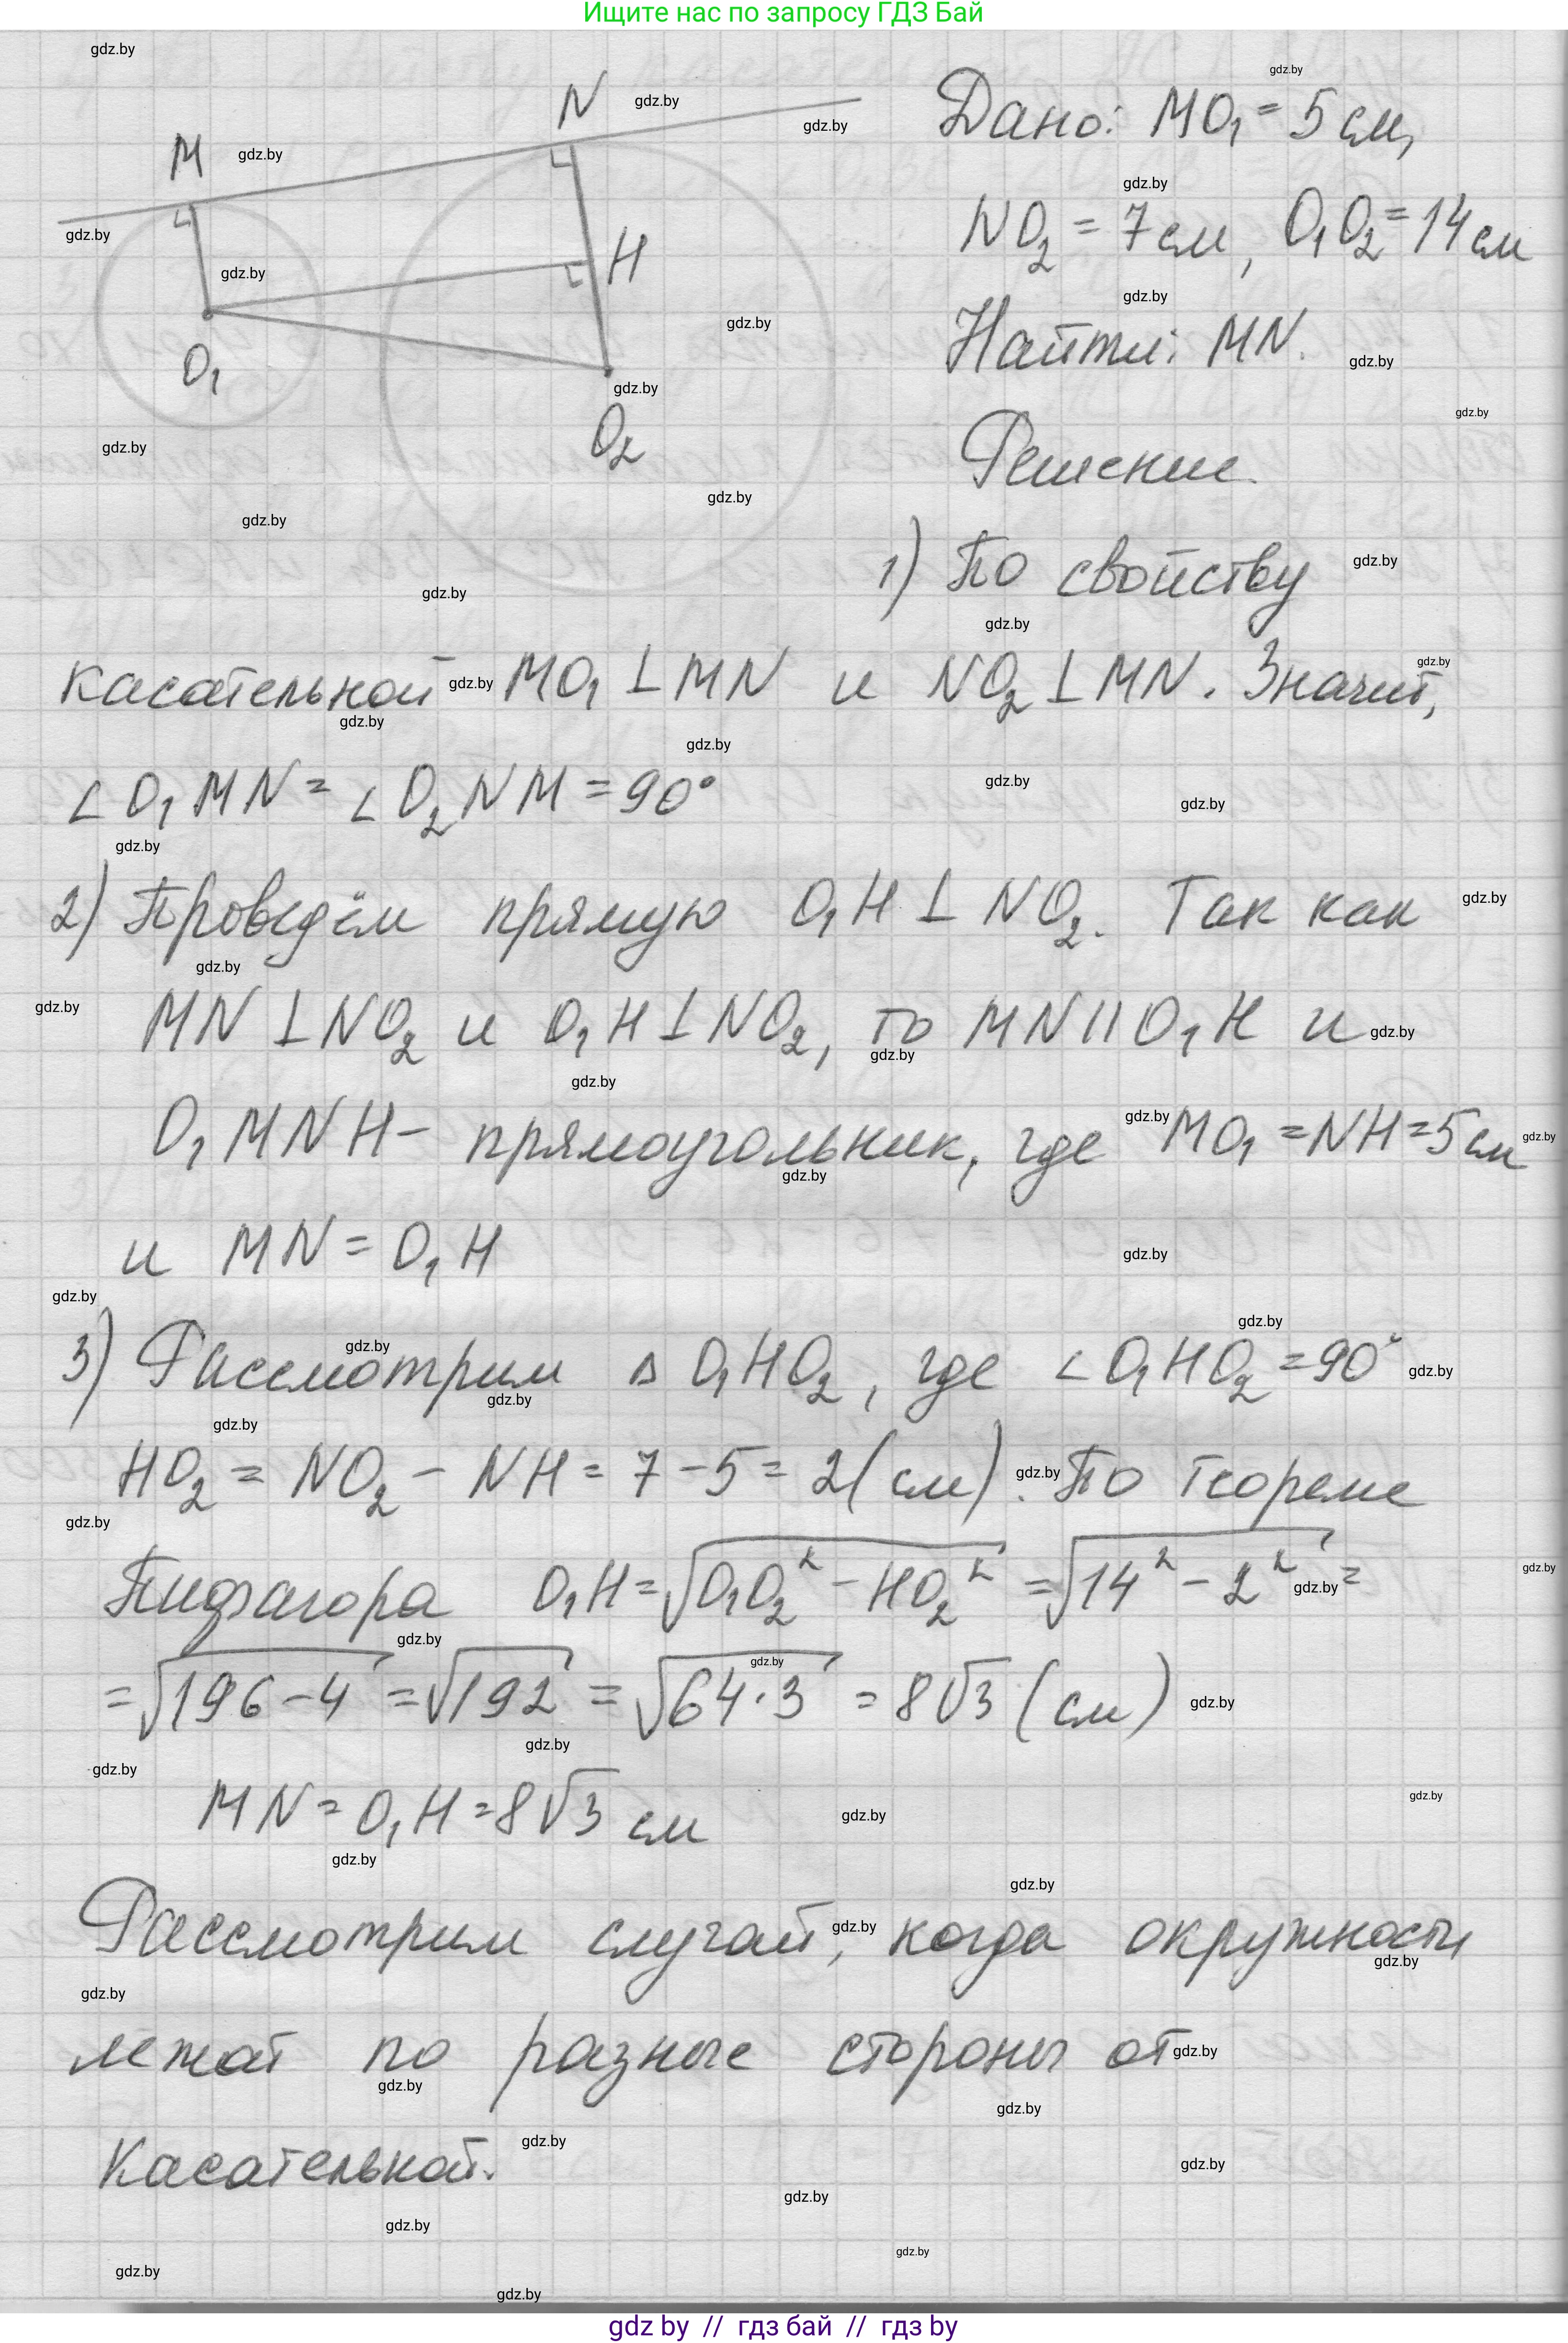 Ищите нас по запросу ГДЗ Бай
M
N
H
O₁
O₂
Дано: MO₁ = 5 см,
NO₂ = 7 см, O₁O₂ = 14 см
Найти: MN.
Решение.
1) По свойству
касательной MO₁ ⊥ MN и NO₂ ⊥ MN. Значит,
∠O₁MN = ∠O₂NM = 90°
2) Проведём прямую O₁H ⊥ NO₂. Так как
MN ⊥ NO₂ и O₁H ⊥ NO₂, то MN || O₁H и
O₁MNH - прямоугольник, где MO₁ = NH = 5 см
и MN = O₁H
3) Рассмотрим Δ O₁HO₂, где ∠O₁HO₂ = 90°
HO₂ = NO₂ - NH = 7 - 5 = 2 (см). По теореме
Пифагора O₁H = √(O₁O₂² - HO₂²) = √(14² - 2²) =
= √(196 - 4) = √192 = √(64 · 3) = 8√3 (см)
MN = O₁H = 8√3 см
Рассмотрим случай, когда окружности
лежат по разные стороны от
касательной.
gdz by // гдз бай // гдз by